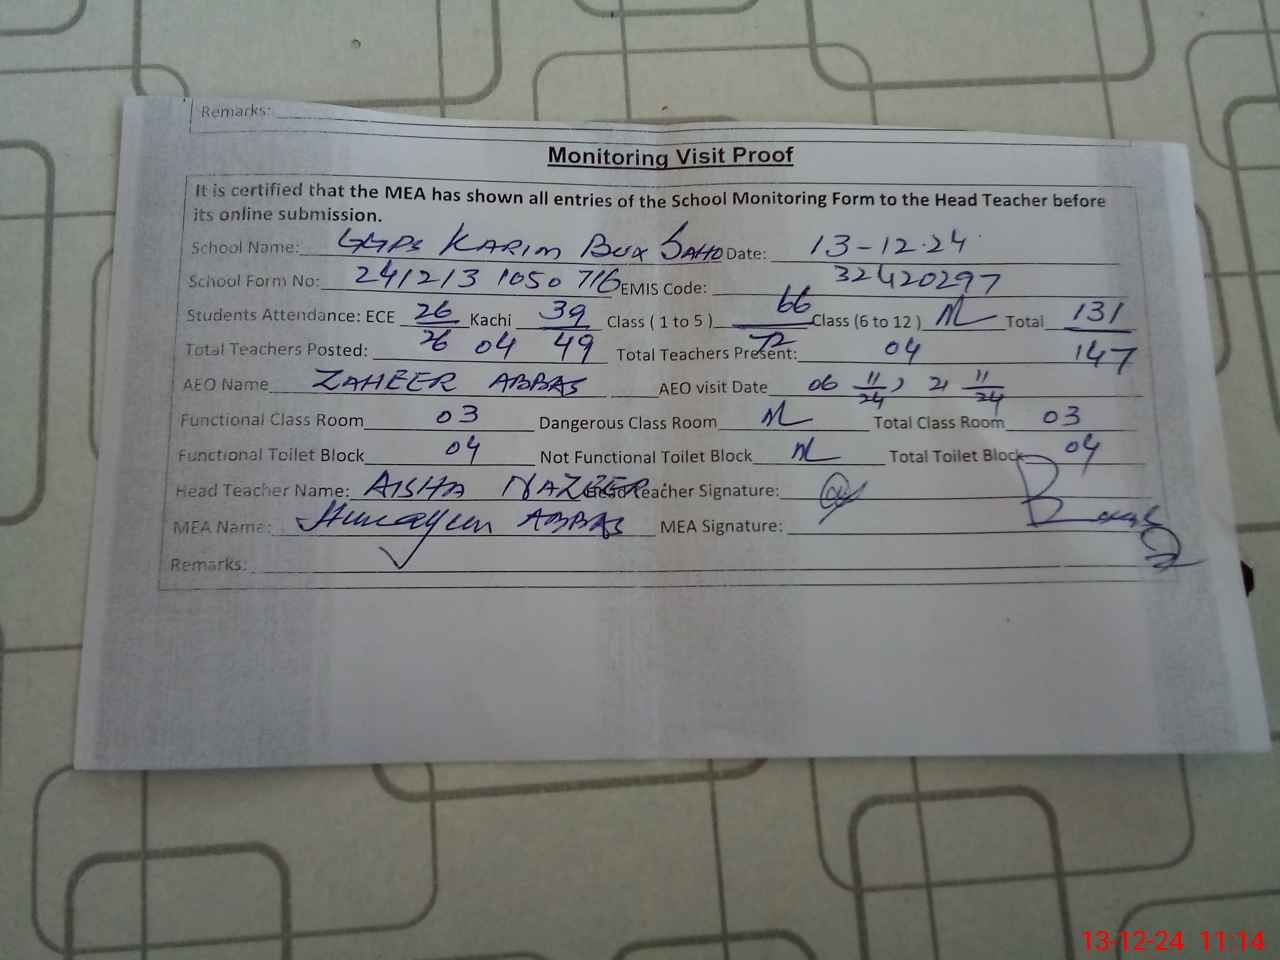 Remarks:
Monitoring Visit Proof
It is certified that the MEA has shown all entries of the School Monitoring Form to the Head Teacher before
its online submission.
School Name: GGPS KARIM BUX SAHO Date: 13-12-24
School Form No: 241213 1050 716 EMIS Code: 32420297
Students Attendance: ECE 26/26 Kachi 39/49 Class ( 1 to 5 ) 66/72 Class (6 to 12 ) Nil Total 131/147
Total Teachers Posted: 04 Total Teachers Present: 04
AEO Name ZAHEER ABBAS AEO visit Date 06 11/24, 21 11/24
Functional Class Room 03 Dangerous Class Room Nil Total Class Room 03
Functional Toilet Block 04 Not Functional Toilet Block Nil Total Toilet Block 04
Head Teacher Name: AISHA NAZEER Head Teacher Signature:
MEA Name: Humayun ABBAS MEA Signature:
Remarks:
13-12-24 11:14